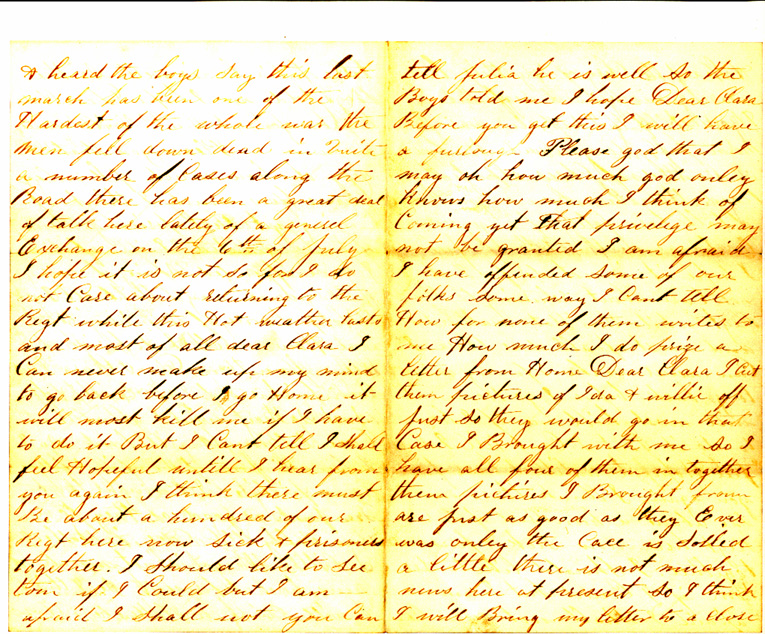 & heard the boys say this last
march has been one of the
Hardest of the whole war the
men fell down dead in Quite
a number of Cases along the
Road there has been a great deal
of talk here lately of a general
Exchange on the 6th of July
I hope it is not so for I do
not Care about returning to the
Regt while this Hot weather lasts
and most of all dear Clara I
Can never make up my mind
to go back before I go Home it
will most kill me if I have
to do it But I Cant tell I shall
feel Hopeful untill I hear from
you again I think there must
Be about a hundred of our
Regt here now sick & prisoners
together. I should like to see
tom if I Could but I am
afraid I shall not you Can
tell Julia he is well so the
Boys told me I hope Dear Clara
Before you get this I will have
a furlough Please god that I
may oh how much god onley
knows how much I think of
Coming yet that privelege may
not be granted I am afraid
I have offended some of our
folks some way I Cant tell
How for none of them writes to
me How much I do prize a
letter from Home Dear Clara I Cut
them pictures of Ida & willie off
Just so they would go in that
Case I Brought with me so I
have all four of them in together
them pictures I Brought from
are Just as good as they Ever
was onley the Case is soiled
a little there is not much
news here at present so I think
I will Bring my letter to a close